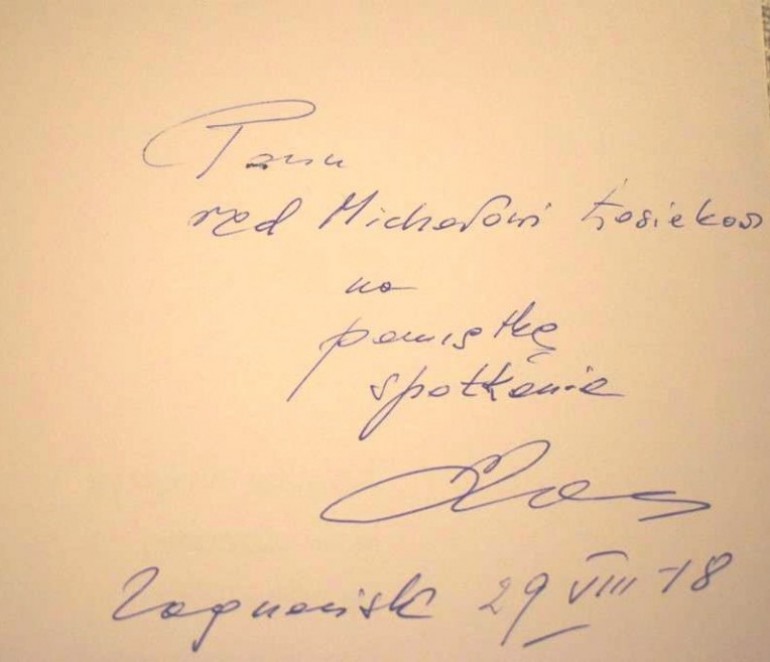 Panu
red Michałowi Łosiekow
na
pamiątkę
spotkania
Zagnańsk 29 VIII 18